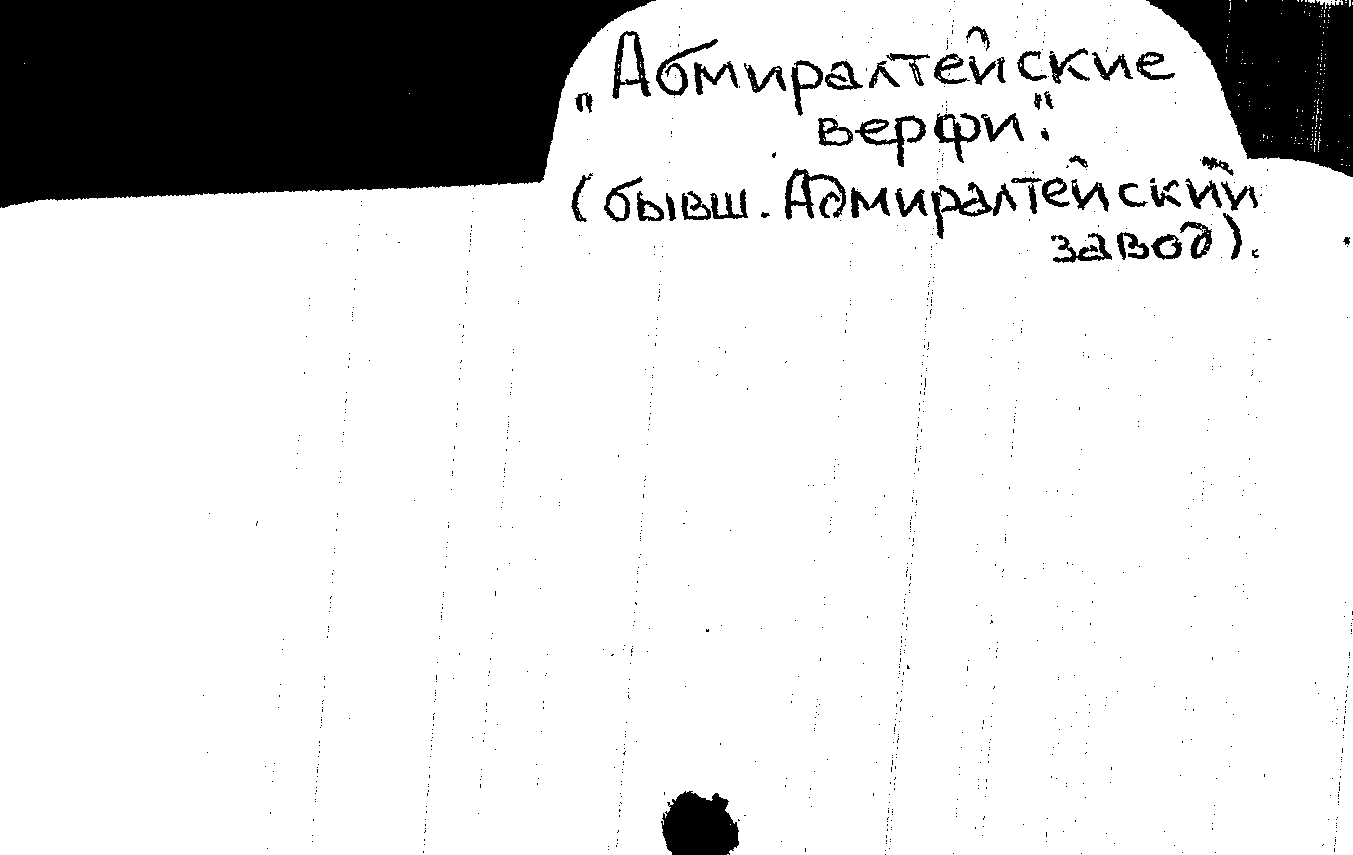 "Адмиралтейские
верфи".
(бывш. Адмиралтейский
завод).